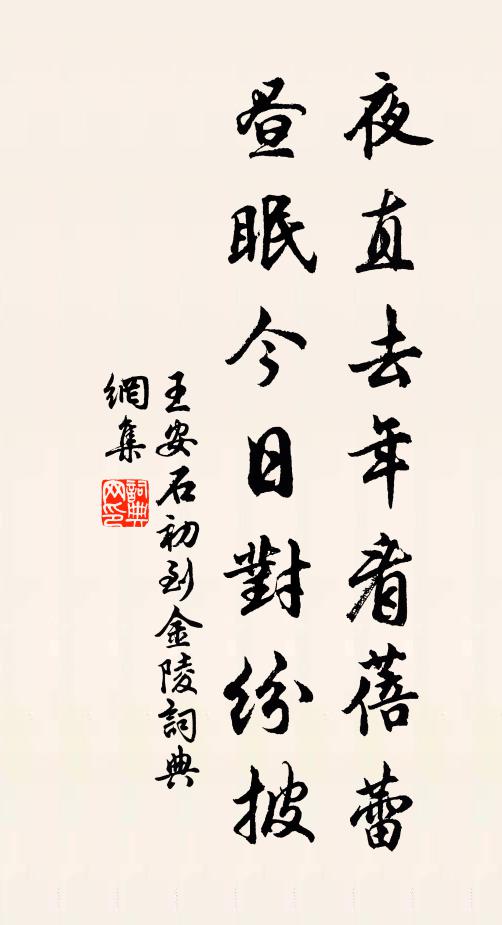 夜直去年看蓓蕾
昼眠今日對紛披
王安石初到金陵詞典
網集
詞典網印